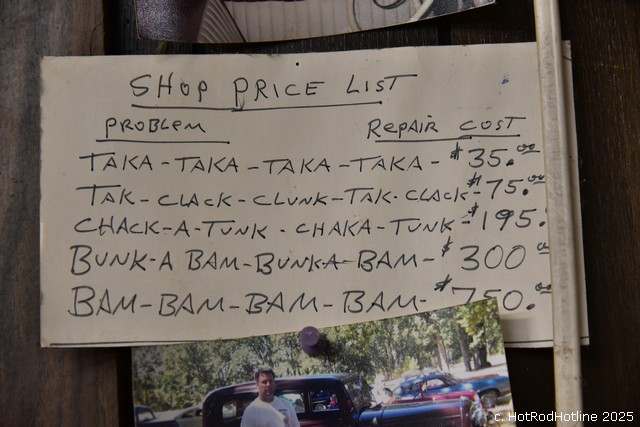 SHOP PRICE LIST
PROBLEM REPAIR COST
TAKA-TAKA-TAKA-TAKA- $35.00
TAK-CLACK-CLUNK-TAK-CLACK-$75.00
CHACK-A-TUNK-CHAKA-TUNK-$195.
BUNK-A BAM-BUNK-A-BAM-$300
BAM-BAM-BAM-BAM-$750.00
c. HotRodHotline 2025